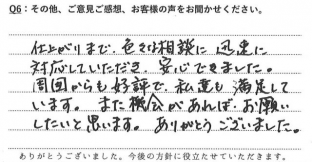 Q6：その他、ご意見ご感想、お客様の声をお聞かせください。
仕上がりまで、色々な相談に迅速に
対応していただき、安心できました。
周囲からも好評で、私達も満足して
います。また機会があれば、お願い
したいと思います。ありがとうございました。
ありがとうございました。今後の方針に役立たせていただきます。